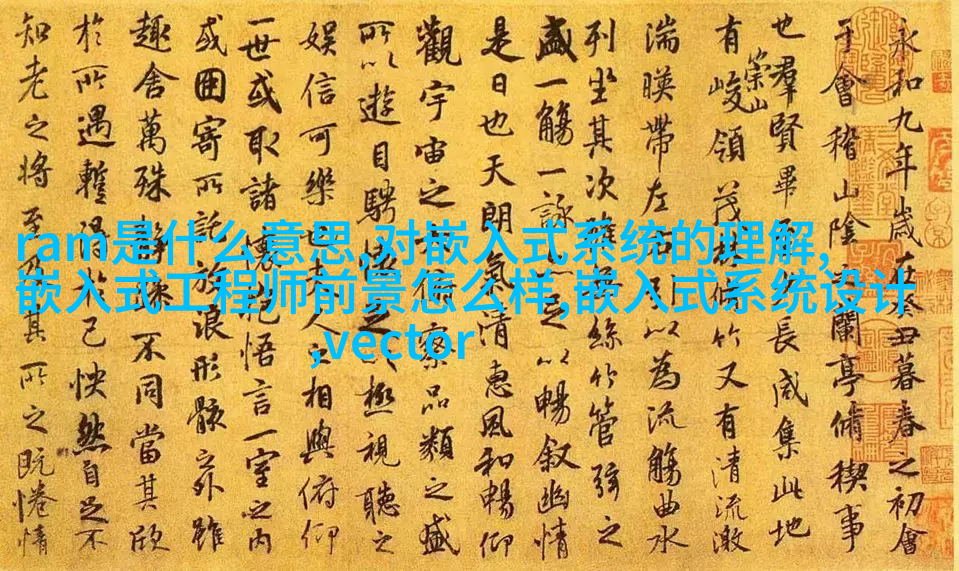 ram是什么意思,对嵌入式系统的理解,
嵌入式工程师前景怎么样,嵌入式系统设计
,vector
永和九年歲在癸丑暮春之初會
于會稽山陰之蘭亭脩稧事
也羣賢畢至少長咸集此地
有崇山峻領茂林脩竹又有清流激
湍暎帶左右引以為流觴曲水
列坐其次雖無絲竹管弦之
盛一觴一詠亦足以暢叙幽情
是日也天朗氣清惠風和暢仰
觀宇宙之大俯察品類之盛
所以遊目騁懷足以極視聽之
娛信可樂也夫人之相與俯仰
一世或取諸懷抱悟言一室之內
或因寄所託放浪形骸之外雖
趣舍萬殊靜躁不同當其欣
於所遇蹔得於己怏然自足不
知老之將至及其所之既惓情